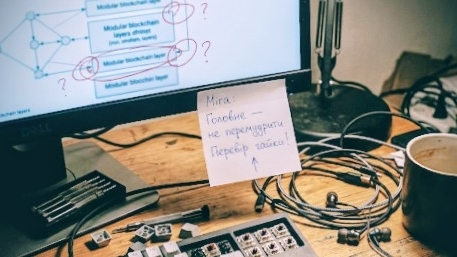 Modular blockchain layer
Modular blockchain
layers
Modular blockchain layer
Modular blockchain layer
?
?
?
DELL
Міга
Головне —
не перемудрити
Перевір гайка!
↑